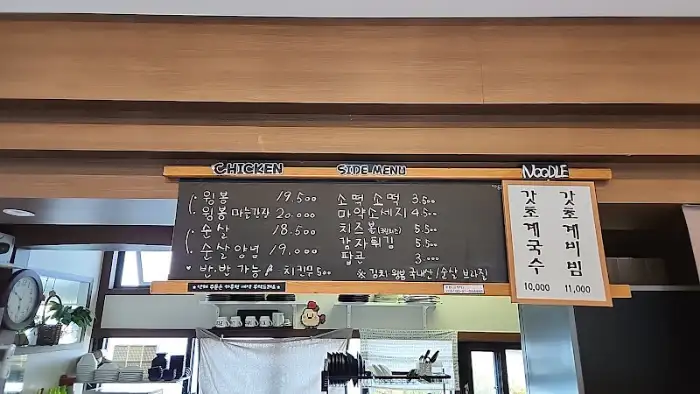 CHICKEN
윙봉 19.500
윙봉 마늘간장 20.000
순살 18.500
순살 양념 19.000
♥ 반.반 가능 치킨무 500
SIDE MENU
소떡 소떡 3.500
마약소세지 4.500
치즈볼 5.500
감자튀김 5.500
팝콘 3.000
※ 윙봉 국내산 / 순살 브라질
NOODLE
갓초계국수
10,000
갓초계비빔
11,000